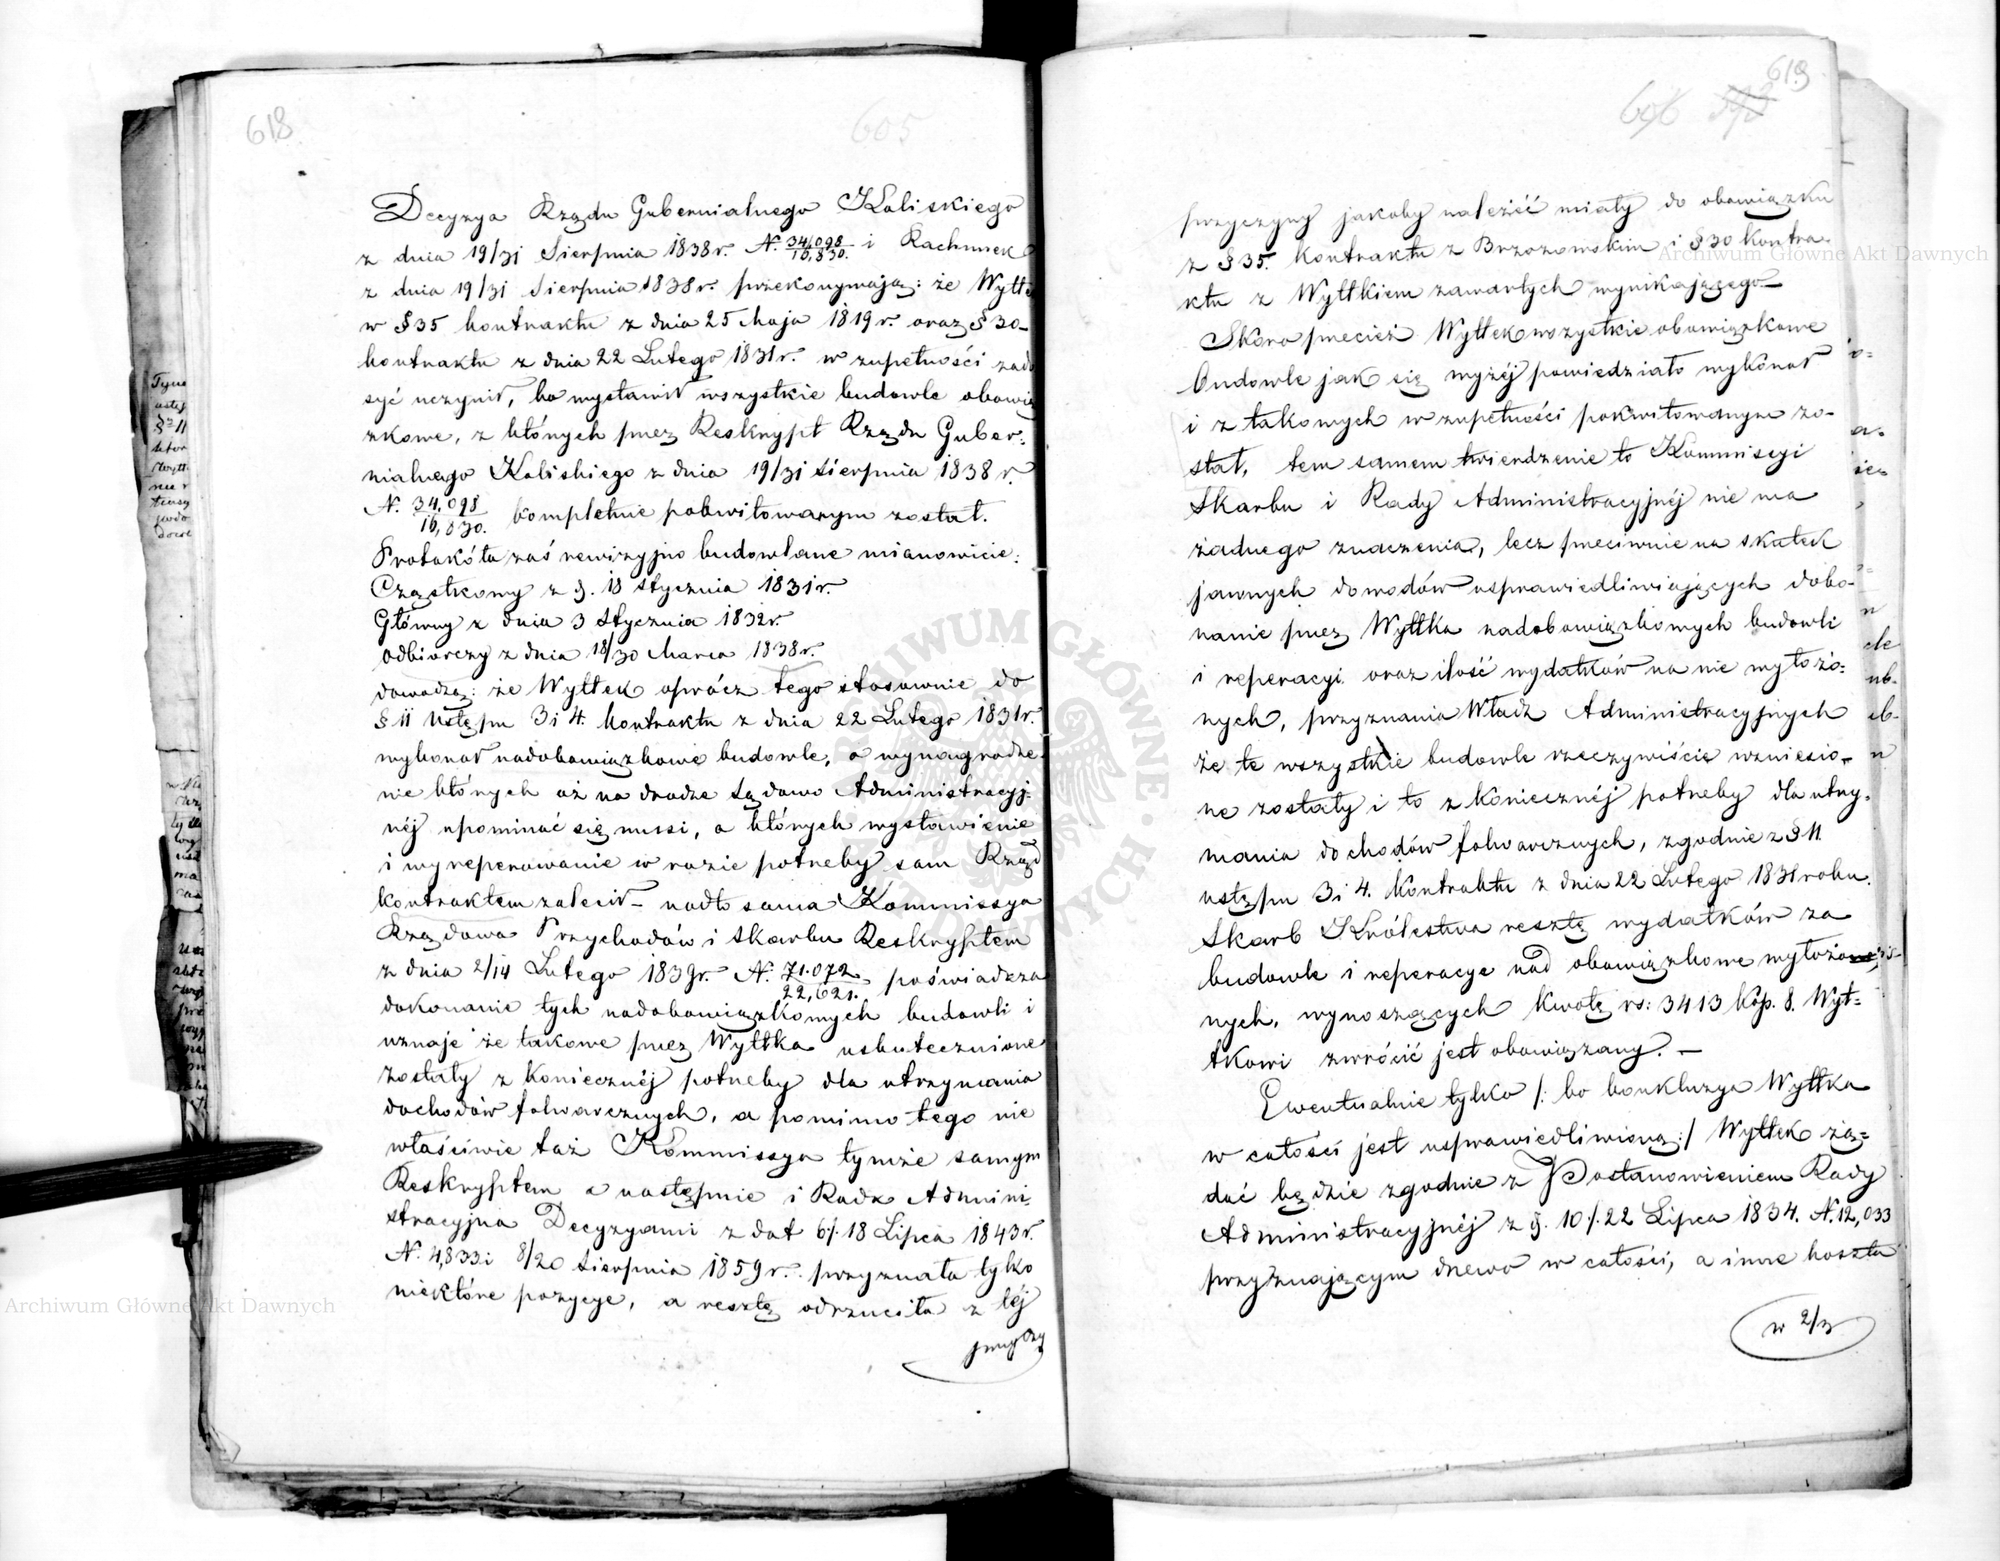 618
605
Decyzya Rządu Gubernialnego Kaliskiego
z dnia 19/31 Sierpnia 1838 r. N. 34,098/16,830. i Rachunek
z dnia 19/31 Sierpnia 1838 r. przekonywają: że Wyttek
w § 35 kontraktu z dnia 25 Maja 1819 r. oraz § 30
kontraktu z dnia 22 Lutego 1831 r. w zupełności zado
syć uczynił, bo wystawił wszystkie budowle obowią
zkowe, z których przez Reskrypt Rządu Guber:
nialnego Kaliskiego z dnia 19/31 Sierpnia 1838 r.
N. 34,098/16,830. kompletnie pokwitowanym został.
Protokóła zaś rewizyjno budowlane mianowicie:
Cząstkowy z d. 18 Stycznia 1831 r.
Główny z dnia 3 Stycznia 1832 r.
odbiorczy z dnia 18/30 Marca 1838 r.
dowodzą: że Wyttek oprócz tego stosownie do
§ 11 Ustępu 3 i 4. kontraktu z dnia 22 Lutego 1831 r.
wykonał nadobowiązkowe budowle, o wynagrodze
nie których aż na drodze Sądowo Administracyj:
néj upominać się mussi, a których wystawienie
i wyreperowanie w razie potrzeby sam Rząd
kontraktem zalecił – nadto sama Kommissya
Rządowa Przychodów i Skarbu Reskryptem
z dnia 2/14 Lutego 1839 r. N. 71.072/22,621. poświadcza
dokonanie tych nadobowiązkowych budowli i
uznaje że takowe przez Wyttka uskutecznione
zostały z koniecznéj potrzeby dla utrzymania
dochodów folwarcznych, a pomimo tego nie
właściwie taż Kommissya tymże samym
Reskryptem a następnie i Rada Admini:
stracyjna Decyzyami z dat 6/18 Lipca 1843 r.
N. 4,833 i 8/20 Sierpnia 1859 r. przyznała tylko
niektóre pozycye, a resztę odrzuciła z téj
przyczy
619
606
przyczyny jakoby należéć miały do obowiązku
z § 35. kontraktu z Brzozowskim i § 30 kontra
ktu z Wyttkiem zawartych wynikającego
Skoro przecież Wyttek wszystkie obowiązkowe
budowle jak się wyżéj powiedziało wykonał
i z takowych w zupełności pokwitowanym zo-
stał, tem samem twierdzenie to Kommissyi
Skarbu i Rady Administracyjnéj nie ma
żadnego znaczenia, lecz przeciwnie na skutek
jawnych dowodów usprawiedliwiających doko-
nanie przez Wyttka nadobowiązkowych budowli
i reperacyi oraz ilość wydatków na nie wyłożo:
nych, przyznania Władz Administracyjnych
że te wszystkie budowle rzeczywiście wzniesio-
ne zostały i to z koniecznéj potrzeby dla utrzy,
mania dochodów folwarcznych, zgodnie z § 11
ustępu 3 i 4. Kontraktu z dnia 22 Lutego 1831 roku.
Skarb Królestwa resztę wydatków za
budowle i reperacye nad obowiązkowe wyłożo
nych, wynoszących kwotę rs: 3413 kop. 8. Wyt=
tkowi zwrócić jest obowiązany. –
Ewentualnie tylko /: bo konkluzya Wyttka
w całości jest usprawiedliwioną :/ Wyttek żą=
dać będzie zgodnie z Postanowieniem Rady
Administracyjnéj z d. 10/22 Lipca 1834. N. 12,033
przyznającym drzewo w całości, a inne koszta
w 2/3
Archiwum Główne Akt Dawnych
Archiwum Główne Akt Dawnych
ARCHIWUM GŁÓWNE AKT DAWNYCH